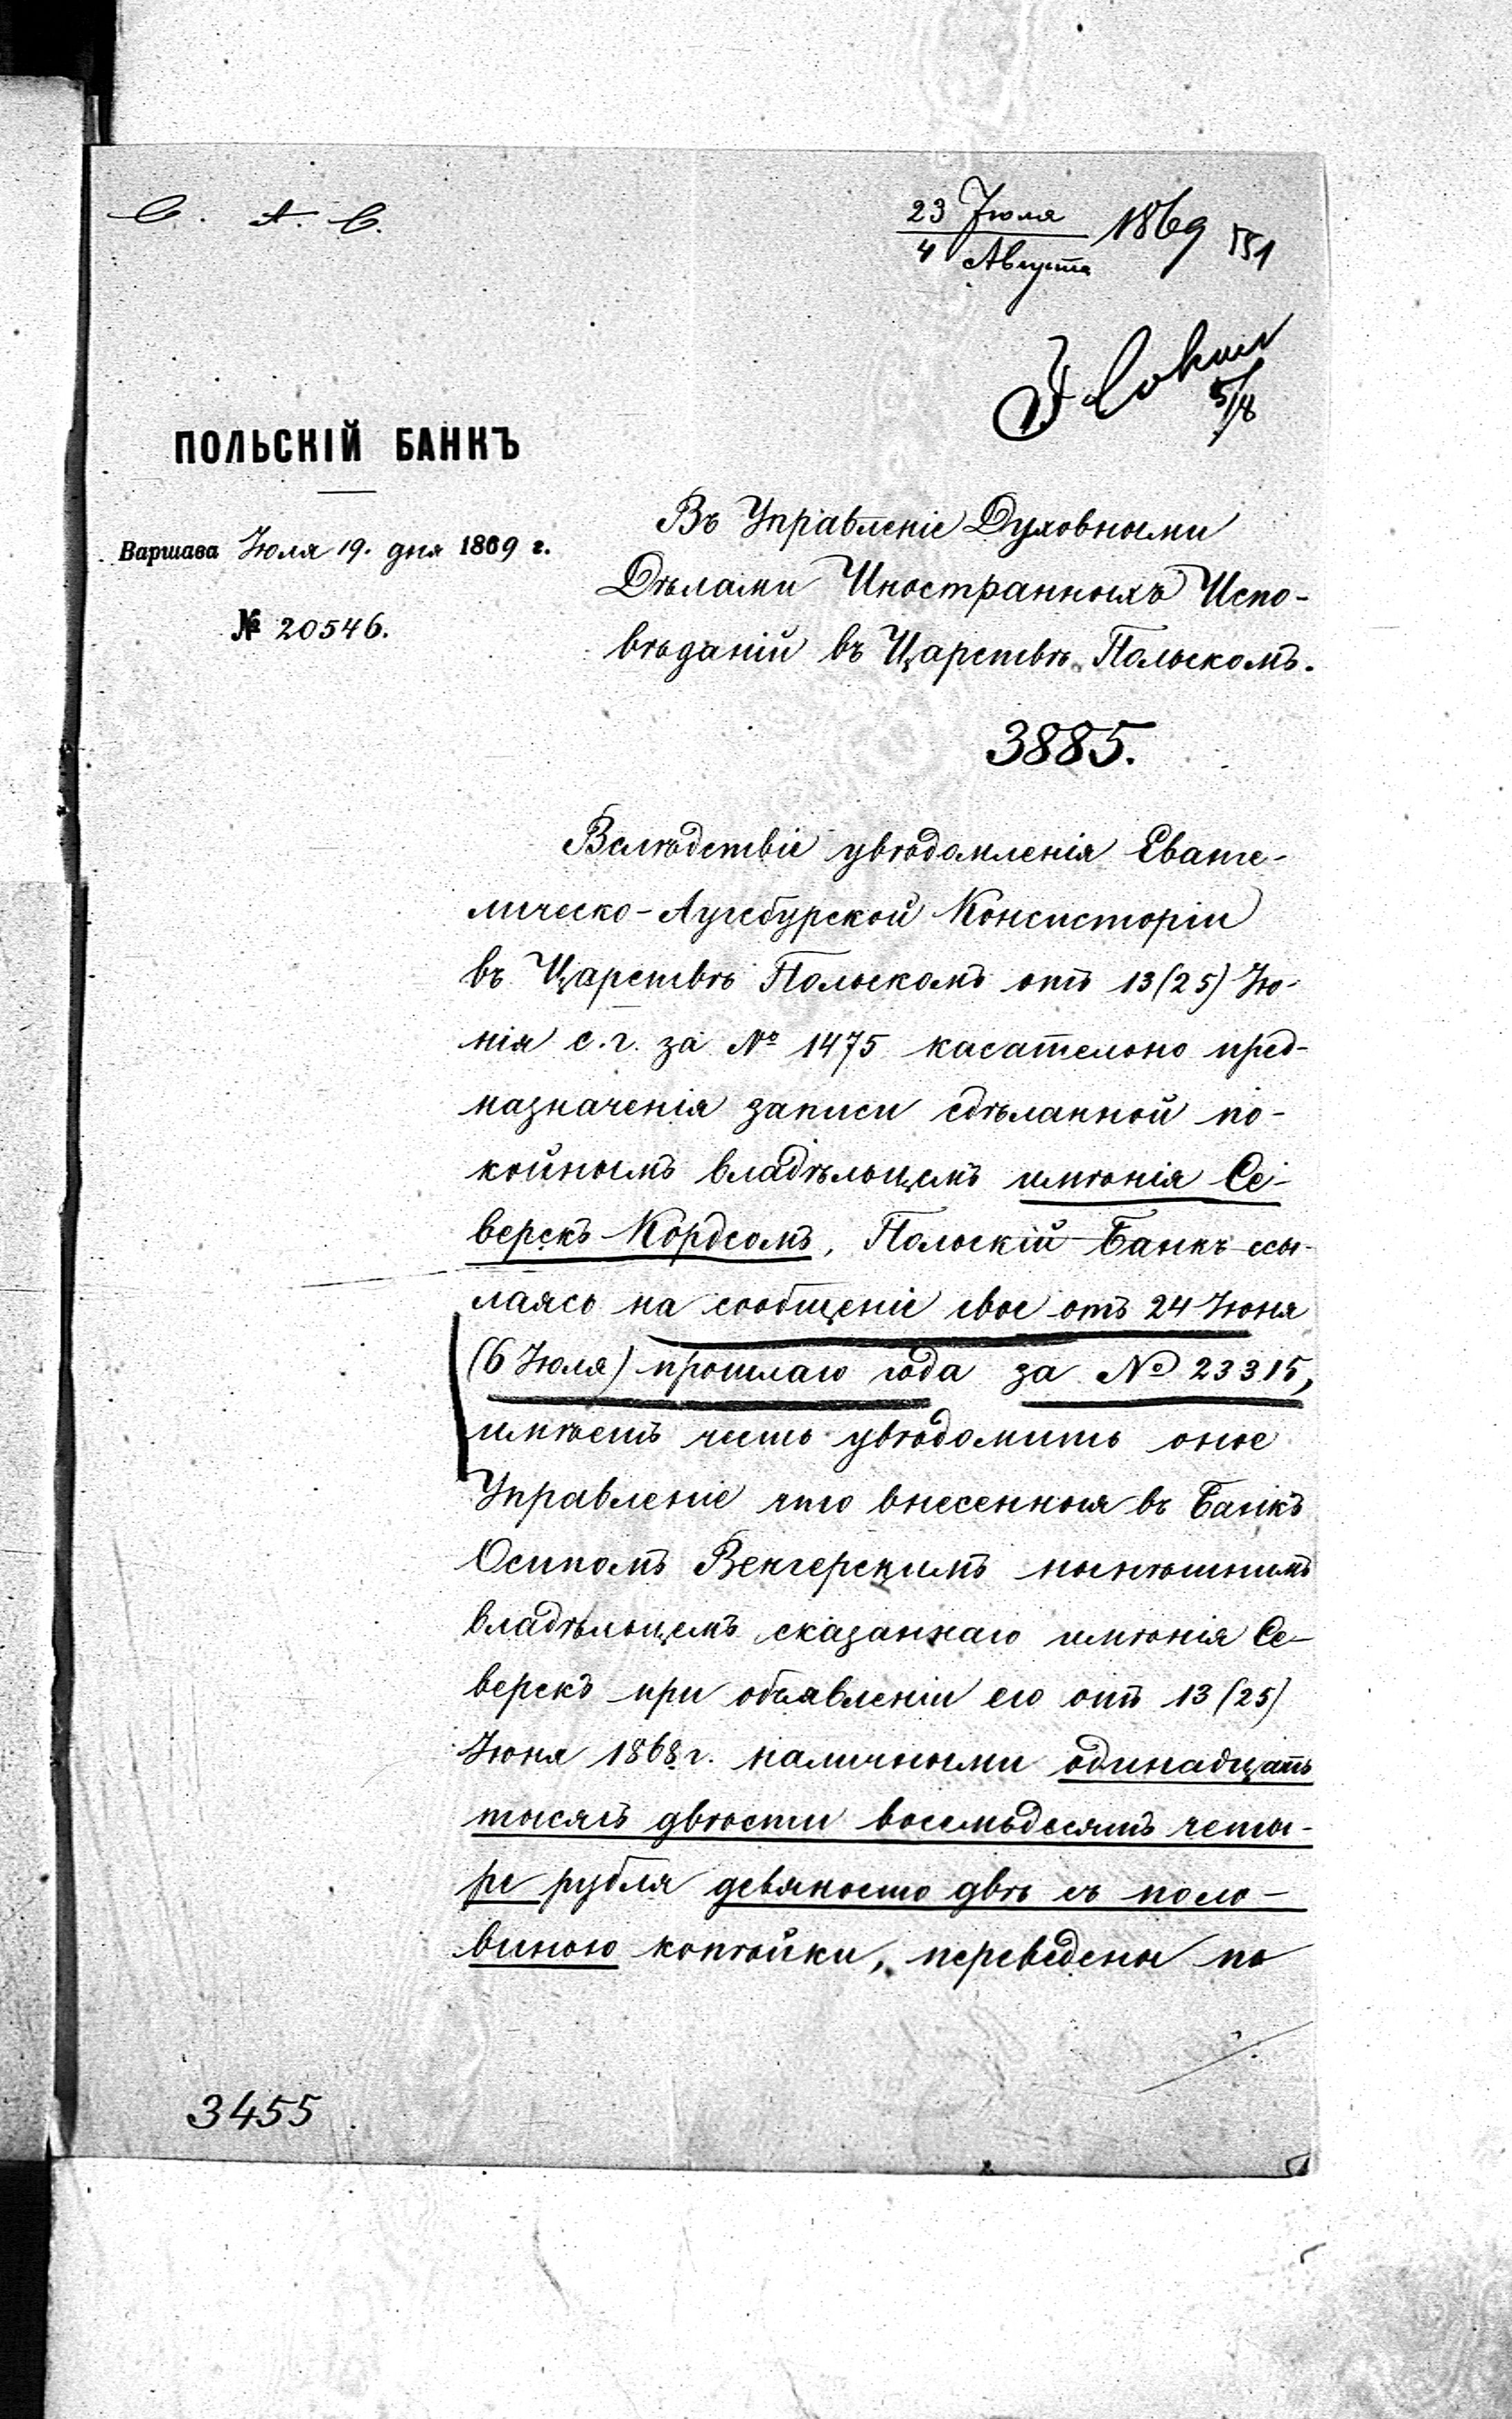 С. А. С.
23 Июля
4 Августа 1869
151
5/8
ПОЛЬСКІЙ БАНКЪ
Варшава Іюля 19. дня 1869 г.
№ 20546.
Въ Управленіе Духовными
Дѣлами Иностранныхъ Испо-
вѣданій въ Царствѣ Польскомъ.
3885.
Вслѣдствіе увѣдомленія Еванге-
лическо-Аугсбурской Консисторіи
въ Царствѣ Польскомъ отъ 13 (25) Ію-
нія с. г. за № 1475 касательно пред-
назначенія записи сдѣланной по-
койнымъ владѣльцемъ имѣнія Се-
верскъ Кордсомъ, Польскій Банкъ ссы-
лаясь на сообщеніе свое отъ 24 Іюня
(6 Іюля) прошлаго года за № 23315,
имѣетъ честь увѣдомить оное
Управленіе что внесенныя въ Банкъ
Осипомъ Венгерскимъ нынѣшнимъ
владѣльцемъ сказаннаго имѣнія Се-
верскъ при объявленіи его отъ 13 (25)
Іюня 1868 г. наличными одинадцать
тысячъ двѣсти восемьдесятъ четы-
ре рубля девяносто двѣ съ поло-
виною копѣйки, переведены по
3455